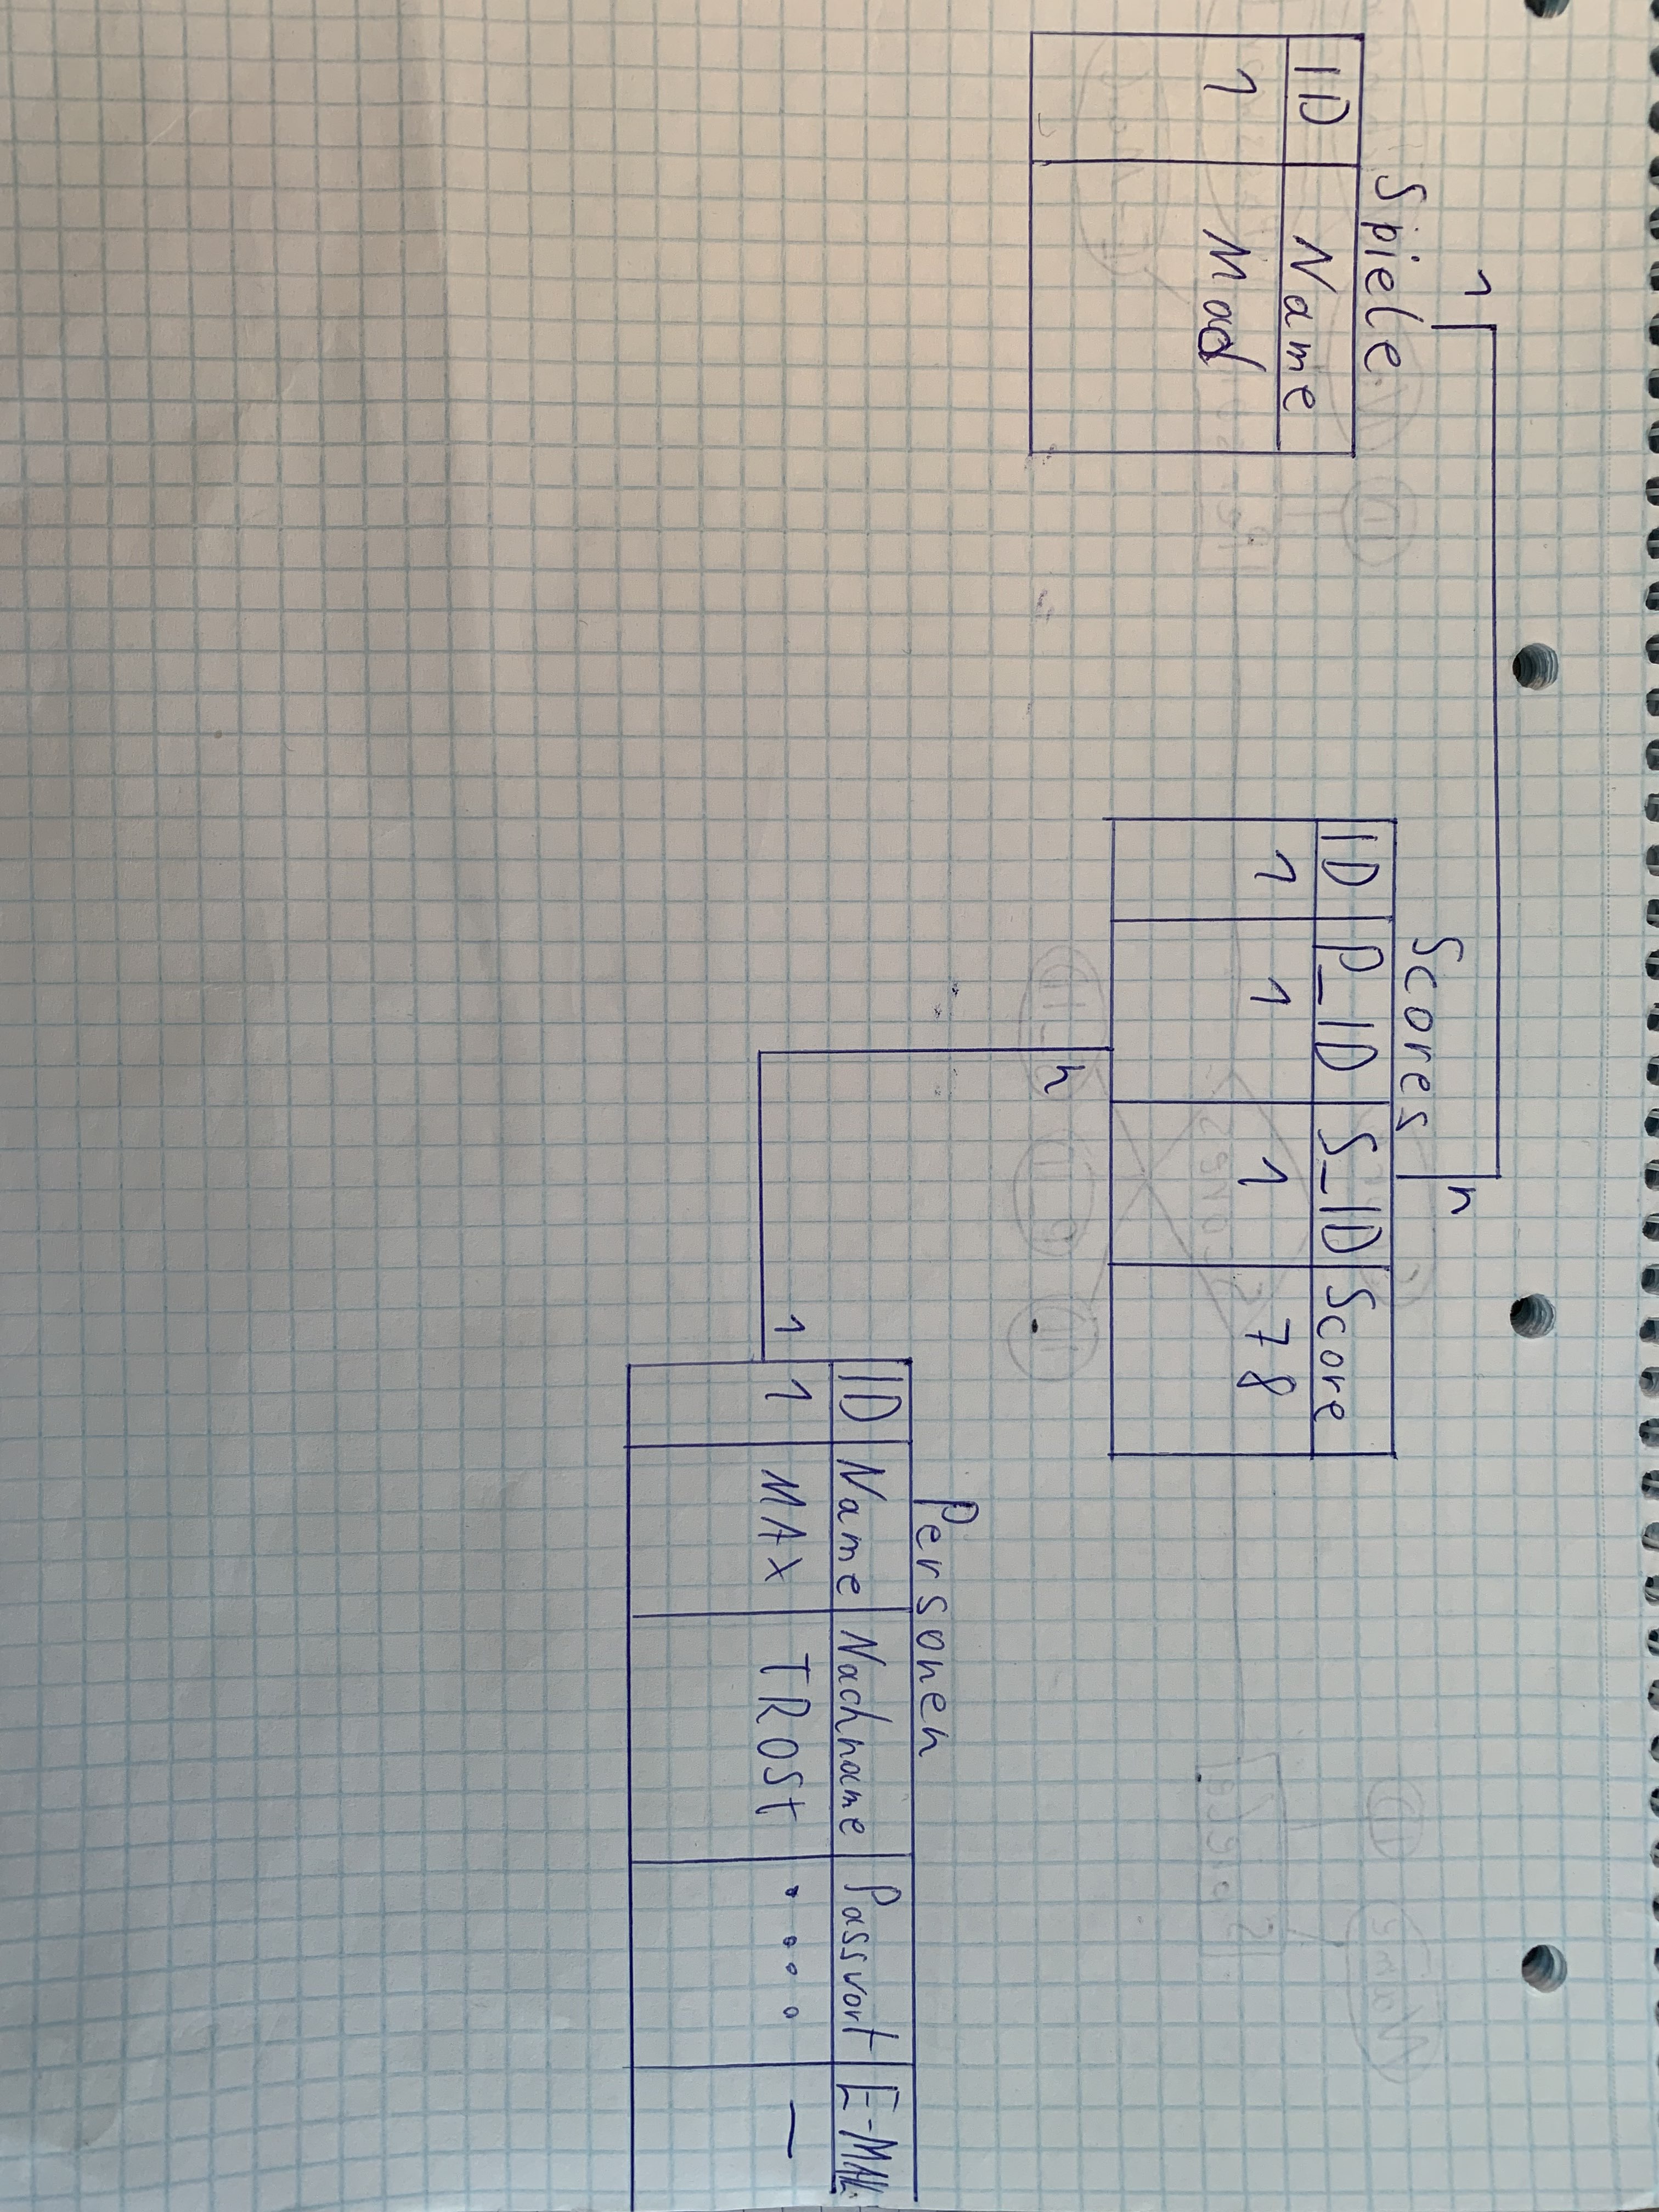 1
n
Spiele
ID Name
1 Mad
Scores
ID P_ID S_ID Score
1 1 1 78
n
1
Personen
ID Name Nachname Passwort E-MAIL
1 MAX TROST